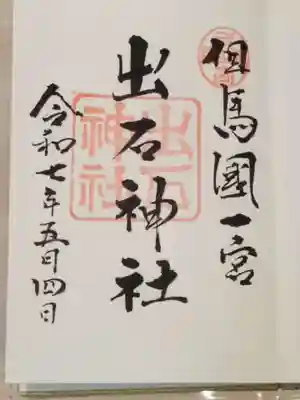 但馬國一宮
出石神社
令和七年五月四日
出石神社